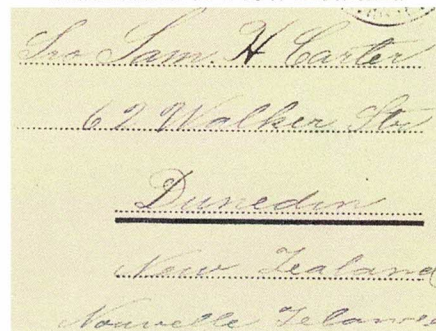 Sro Sam. H Carter
62 Walker Str
Dunedin
New Zealand
Nouvelle Zelande